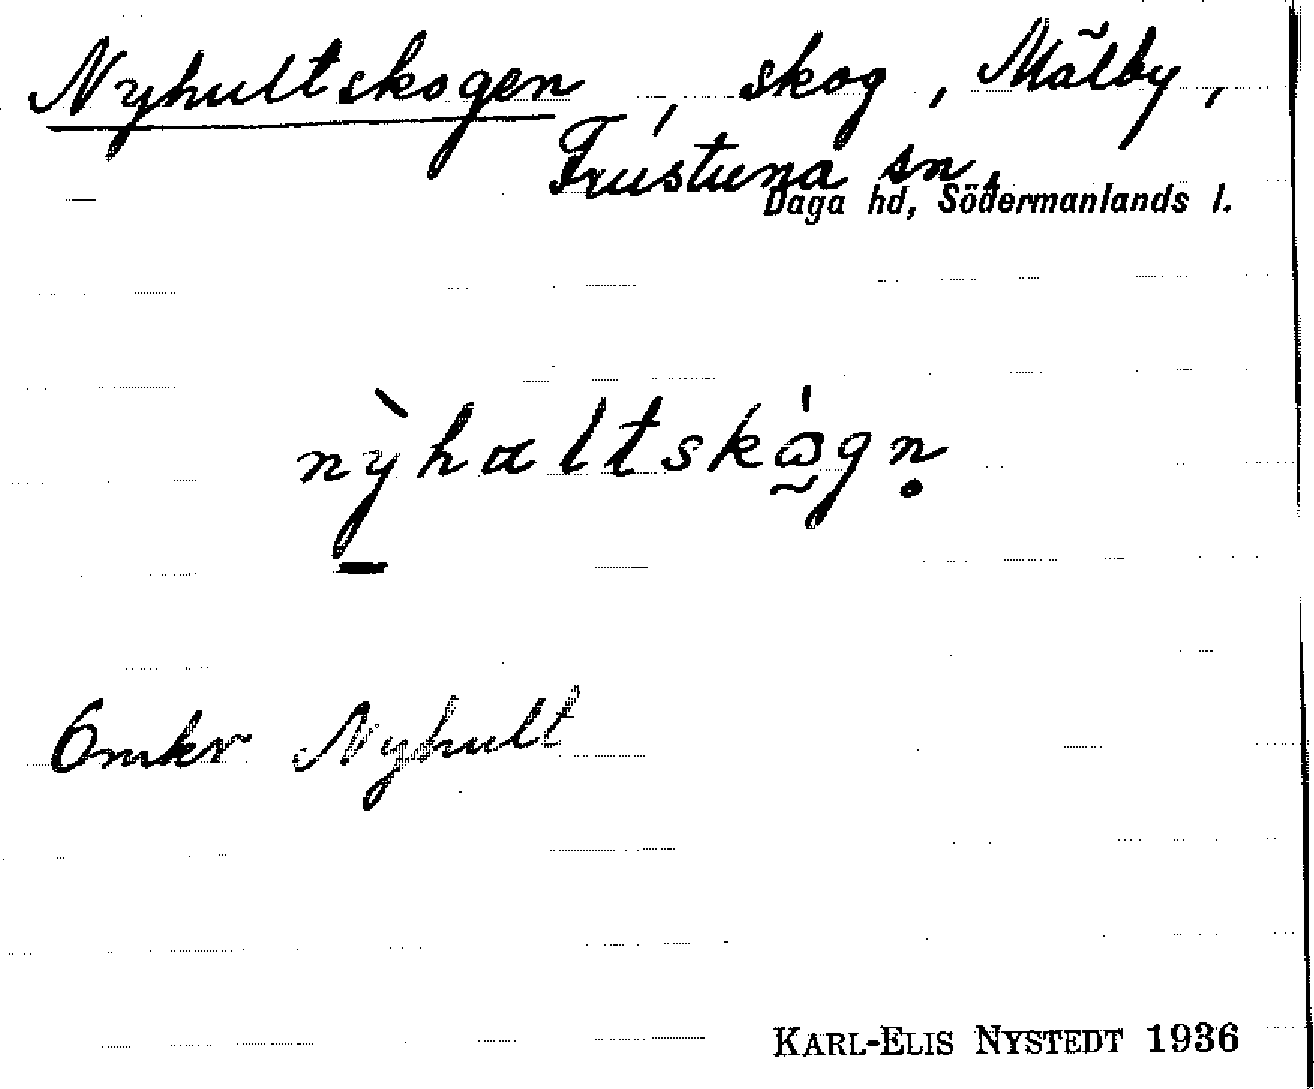 Nyhultskogen, skog, Mälby,
Frustuna sn.
Daga hd, Södermanlands l.
nỳhaltskògṇ
Omkr Nyhult
KARL-ELIS NYSTEDT 1936